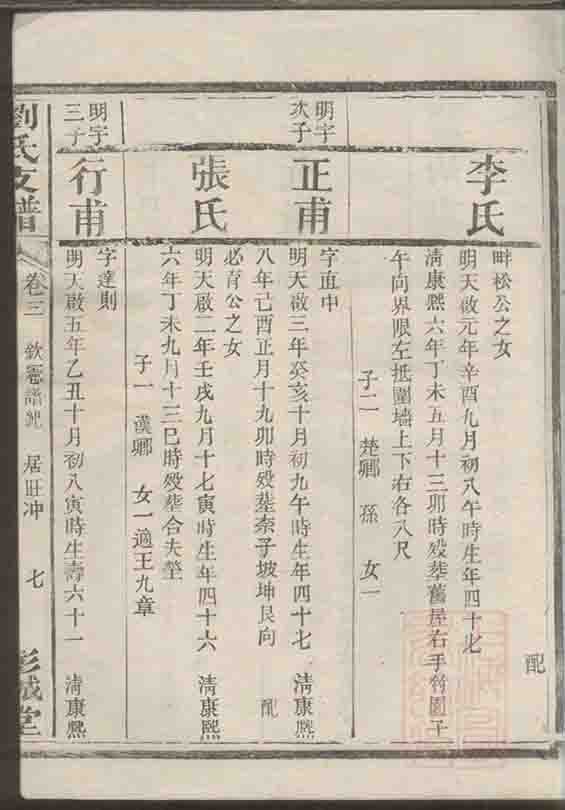 配
李氏
畊松公之女
明天啟元年辛酉九月初八午時生年四十七
清康熙六年丁未五月十三卯時殁塟舊屋右手竹園子
午向界限左抵圍墻上下右各八尺
子二 楚卿 孫 女一
明宇
次子
正甫
字直中
明天啟三年癸亥十月初九午時生年四十七 清康熙
八年己酉正月十九卯時殁塟柰子坡坤艮向 配
張氏
必育公之女
明天啟二年壬戌九月十七寅時生年四十六 清康熙
六年丁未九月十三巳時殁塟合夫塋
子一 漢卿 女一適王九章
明宇
三子
行甫
字達則
明天啟五年乙丑十月初八寅時生壽六十一 清康熙
劉氏支譜
卷三 居旺冲 七 彭城堂